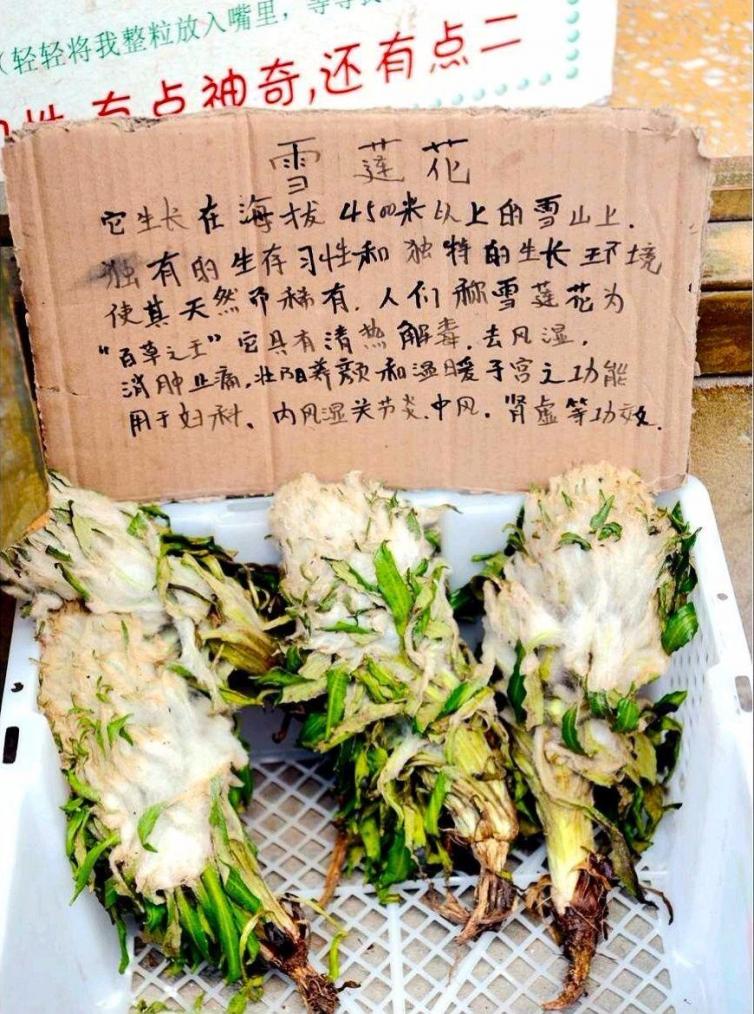 （轻轻将我整粒放入嘴里，等等
有点神奇,还有点二
雪莲花
它生长在海拔4500米以上的雪山上.
独有的生存习性和独特的生长环境
使其天然而稀有.人们称雪莲花为
“百草之王”它具有清热解毒.去风湿,
消肿止痛,壮阳养颜和温暖子宫之功能
用于妇科、内风湿关节炎.中风.肾虚等功效.